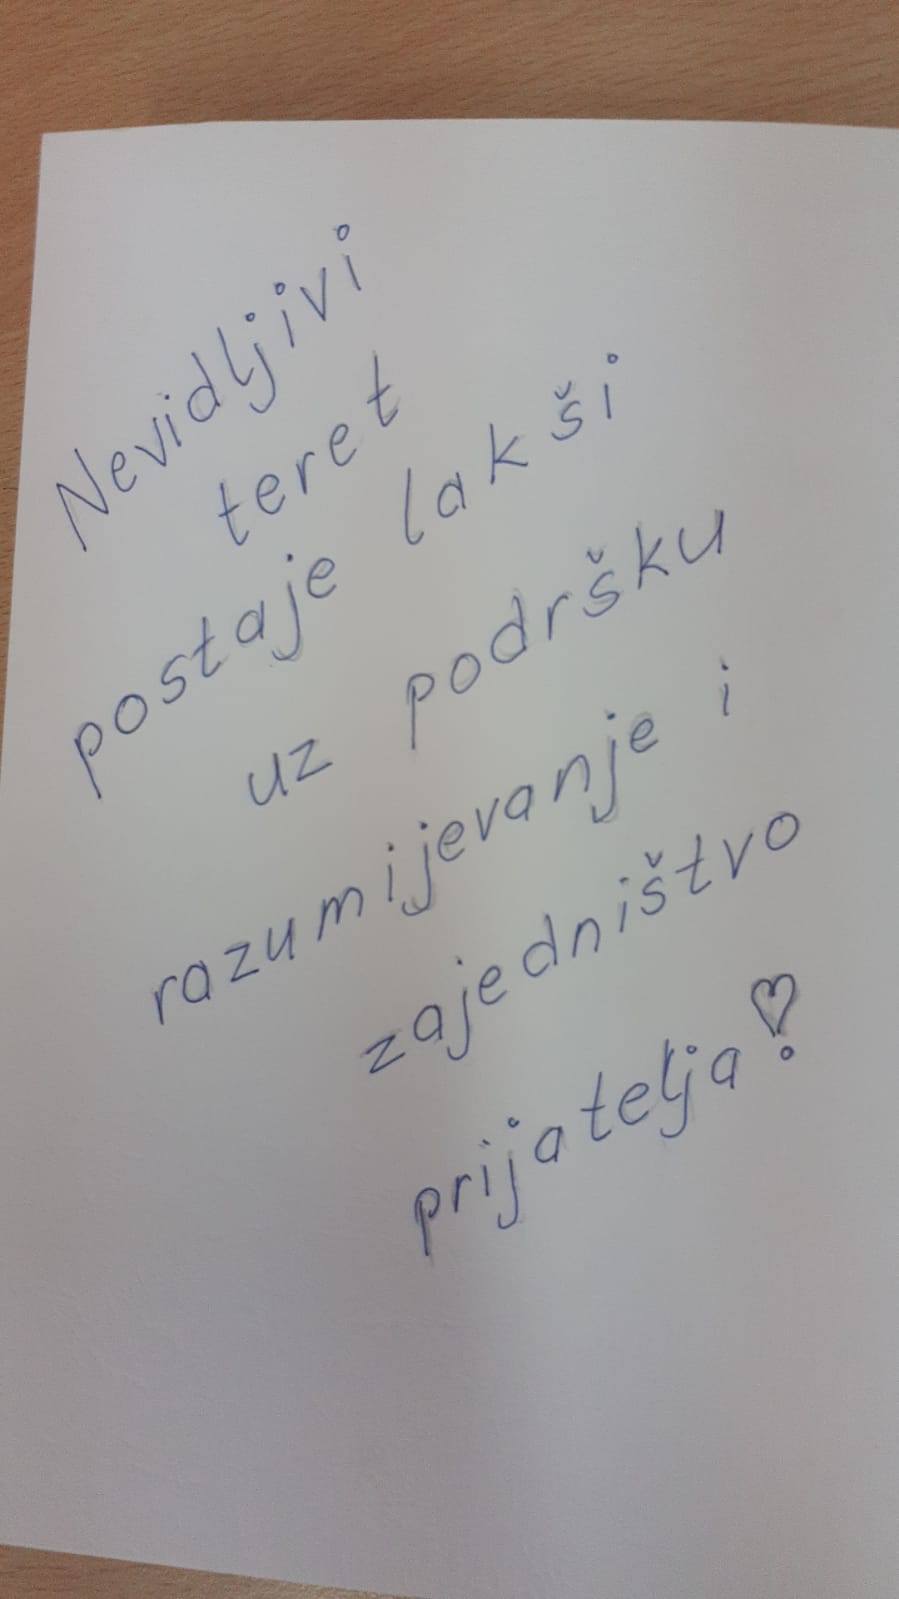 Nevidljivi
teret
postaje lakši
uz podršku
razumijevanje i
zajedništvo
prijatelja!